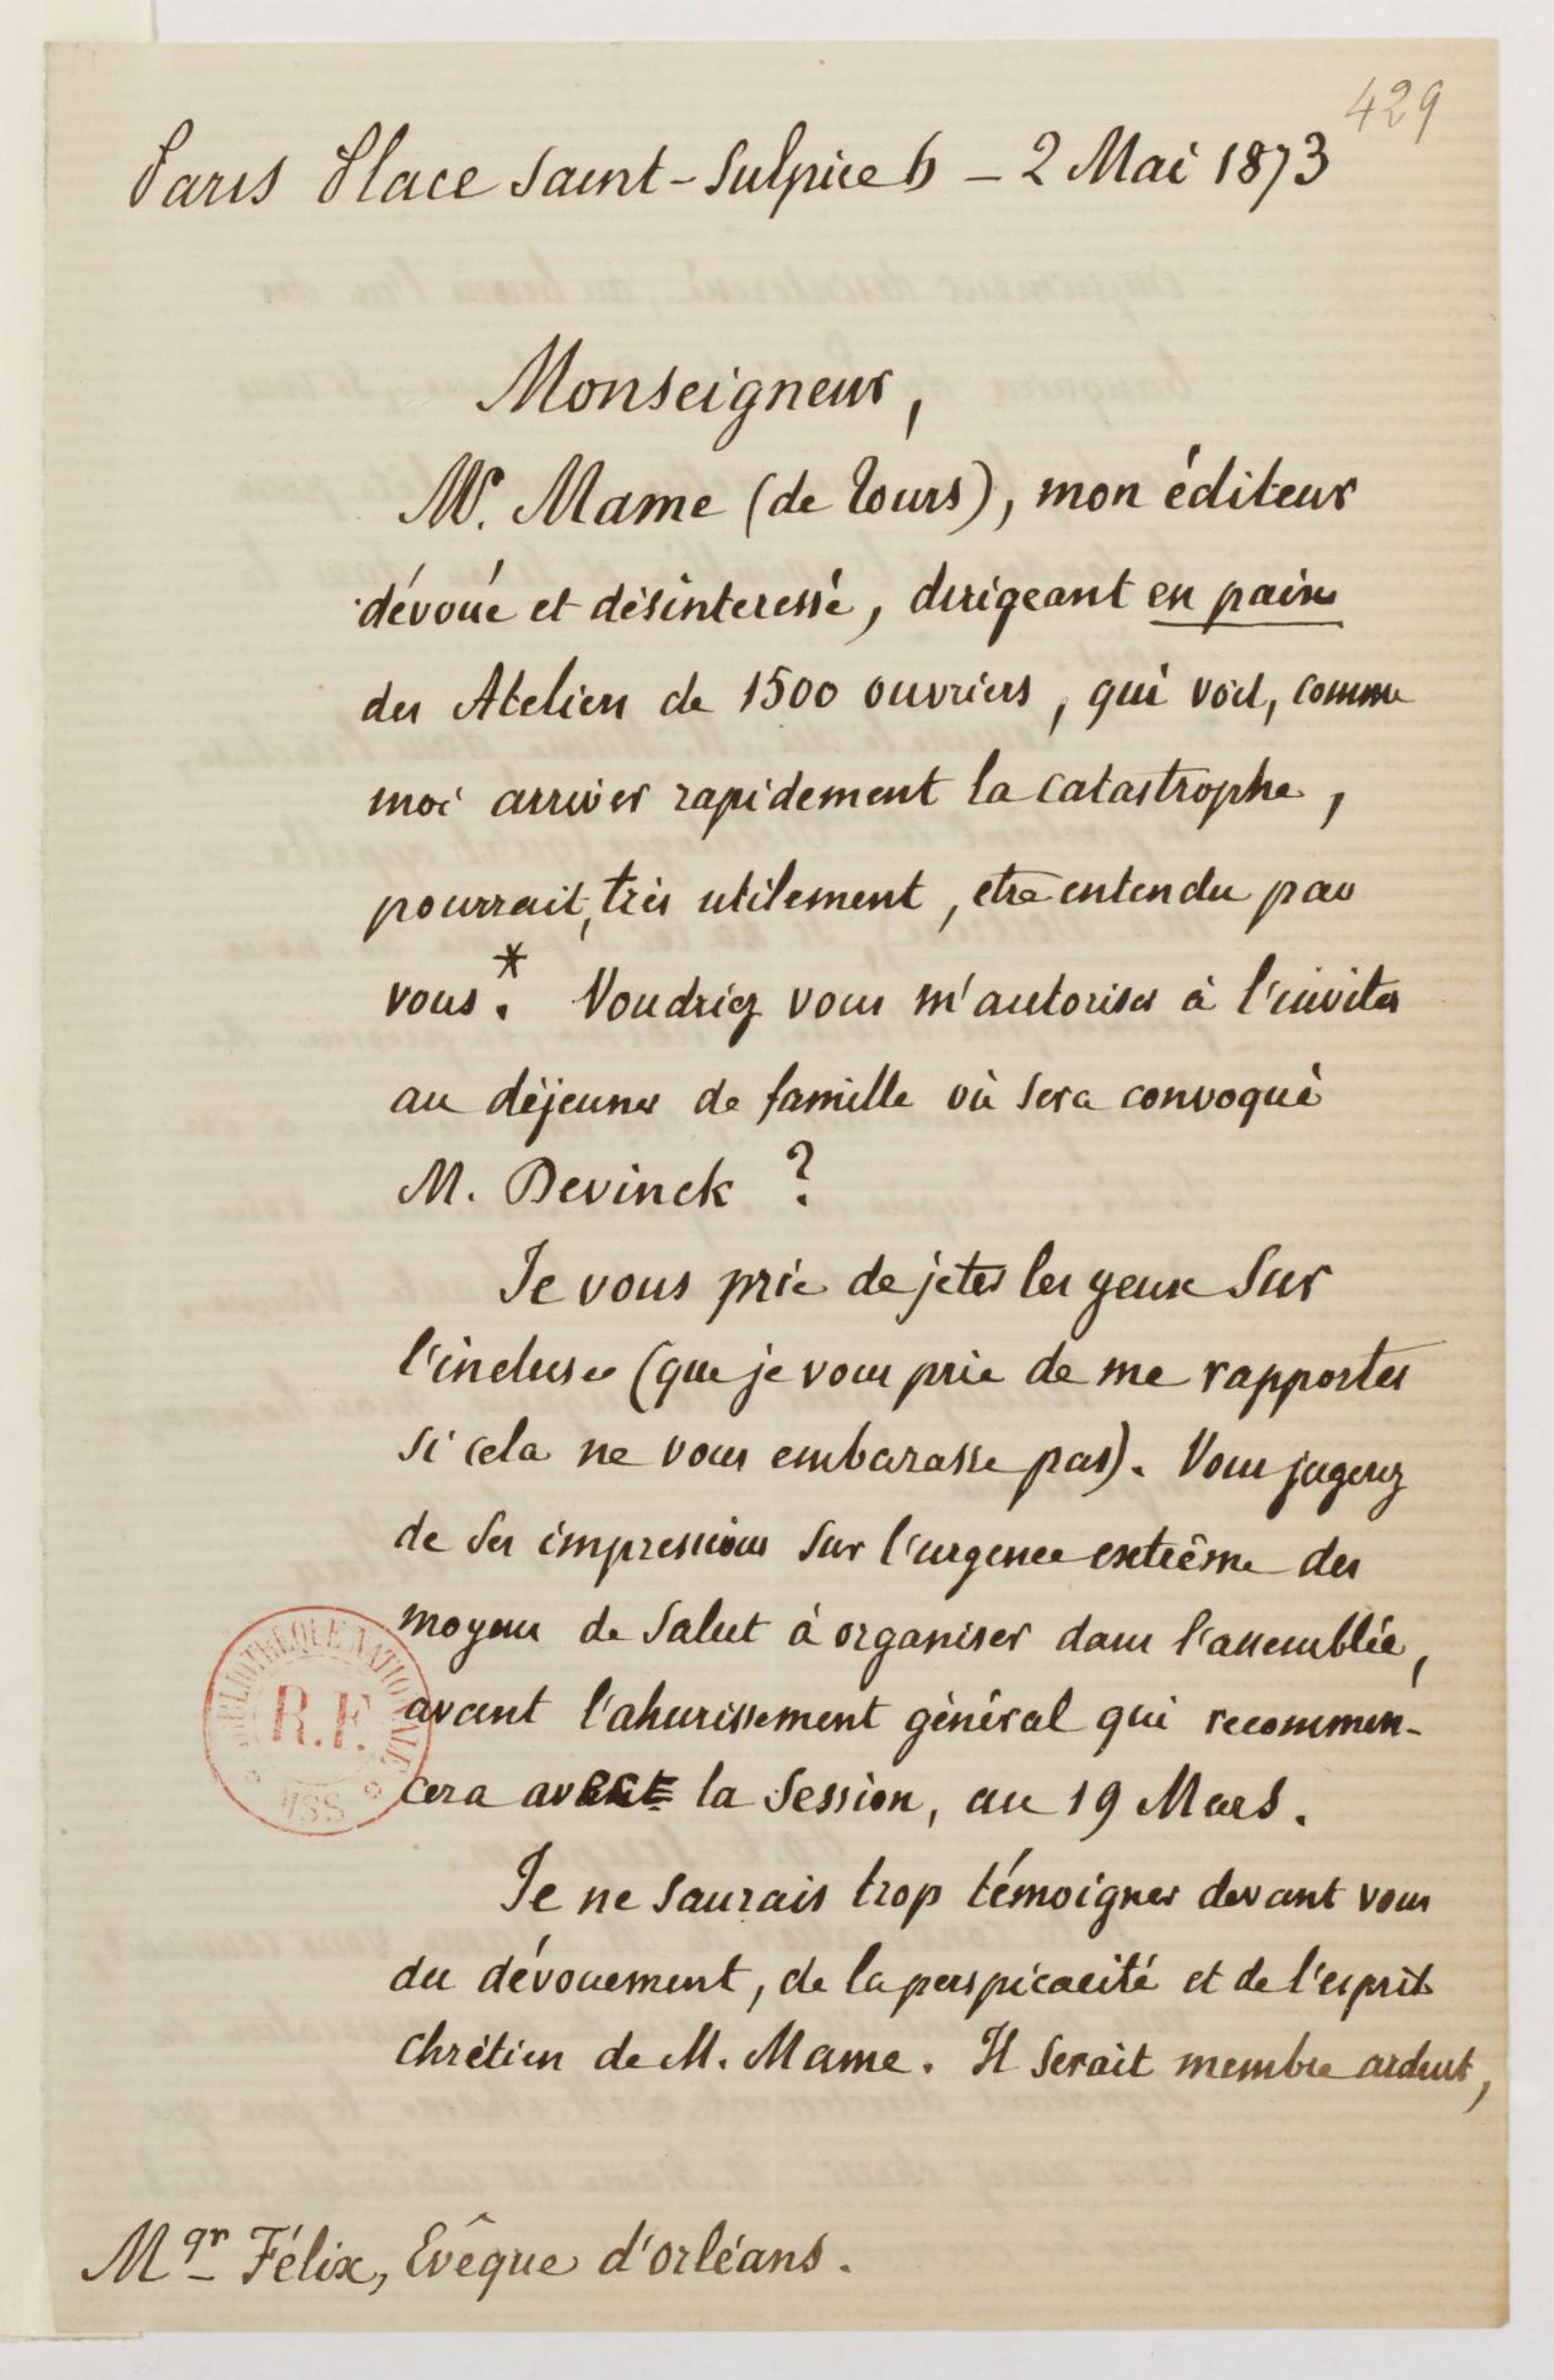 429
Paris Place Saint-Sulpice 6 – 2 Mai 1873
Monseigneur,
Mr. Mame (de Tours), mon éditeur
dévoué et désinteressé, dirigeant en paix
des Ateliers de 1500 ouvriers, qui voit, comme
moi arriver rapidement la catastrophe,
pourrait, très utilement, etre entendu par
vous.* Voudriez vous m'autoriser à l'inviter
au déjeuner de famille où sera convoqué
M. Devinck ?
Je vous prie de jeter les yeux sur
l'incluse (que je vous prie de me rapporter
si cela ne vous embarasse pas). Vous jugerez
de ses impressions sur l'urgence extrême des
moyens de salut à organiser dans l'assemblée,
avant l'ahurissement général qui recommen-
cera avec la Session, au 19 Mars.
Je ne saurais trop témoigner devant vous
du dévouement, de la perspicacité et de l'esprit
chrétien de M. Mame. Il serait membre ardent,
Mgr Félix, Evêque d'Orléans.
BIBLIOTHEQUE NATIONALE
R.F.
MSS